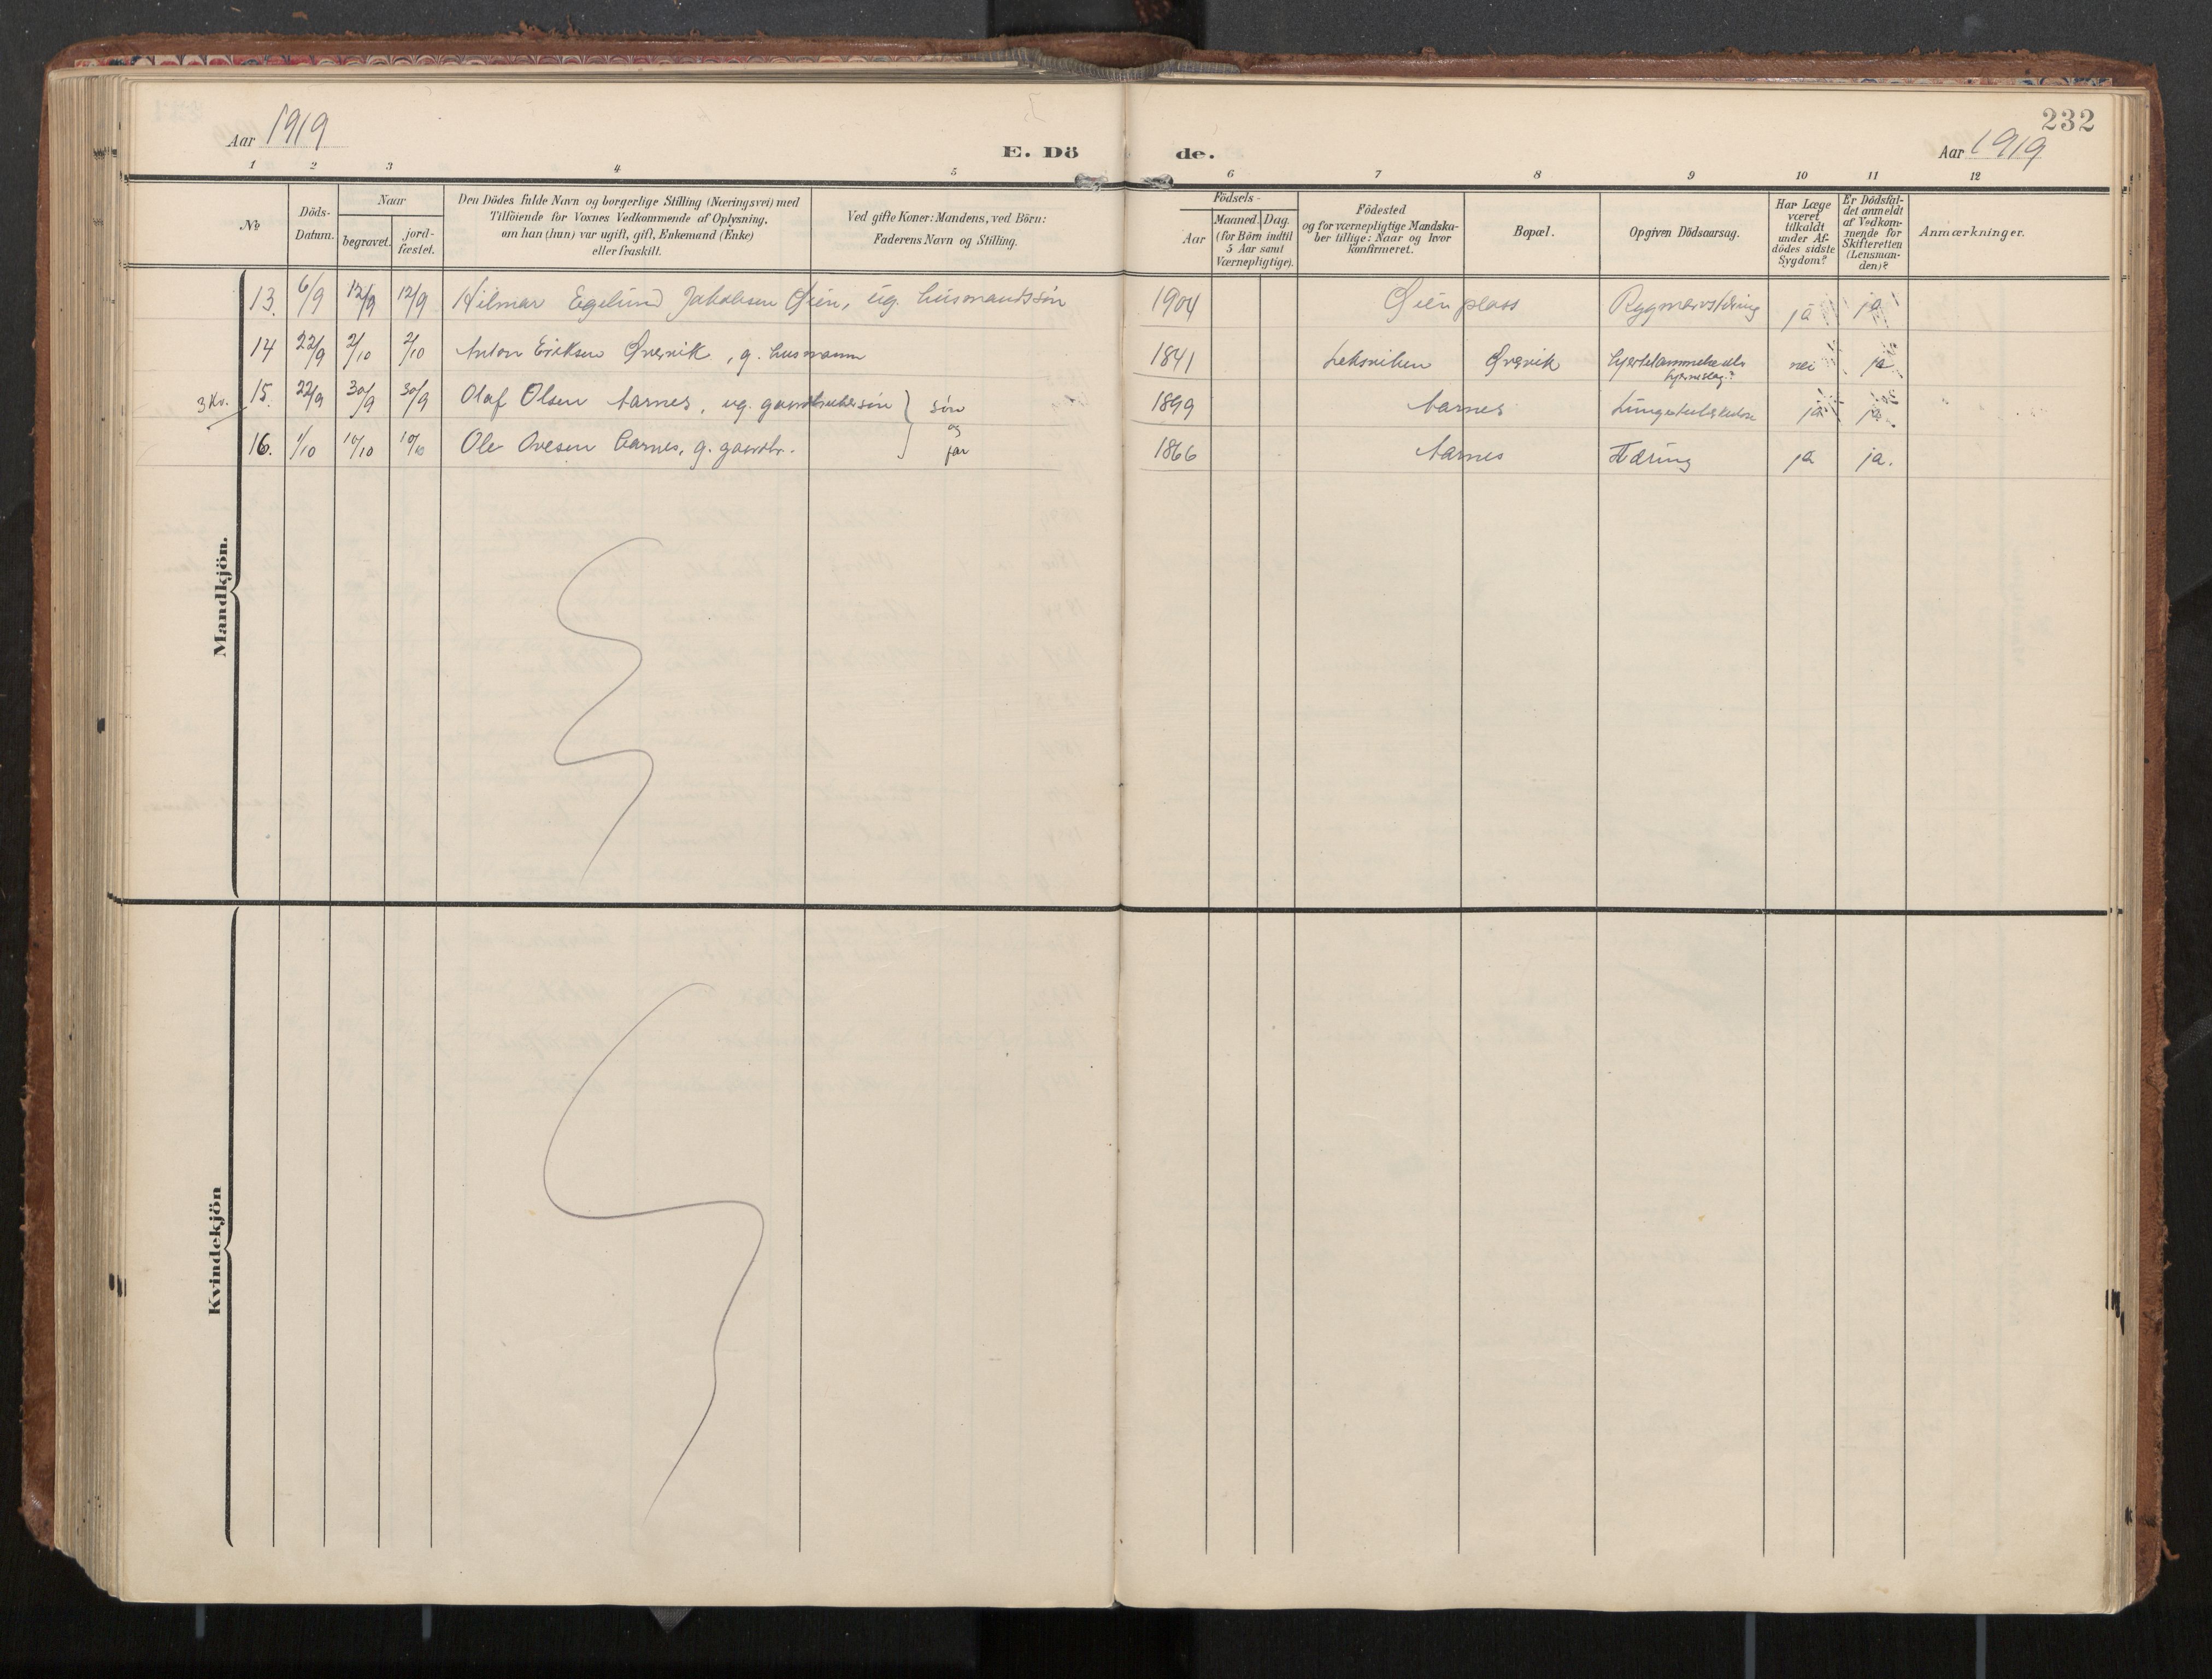 232
Aar 1919
E. Dö
de.
Aar 1919
1 2 3 4 5 6 7 8 9 10 11 12
No
Döds-
Datum.
Naar
begravet.
jord-
fæstet.
Den Dödes fulde Navn og borgerlige Stilling (Næringsvei) med
Tilföiende for Voxnes Vedkommende af Oplysning,
om han (hun) var ugift, gift, Enkemand (Enke)
eller fraskilt.
Ved gifte Koner: Mandens, ved Börn:
Faderens Navn og Stilling.
Födsels-
Aar
Maaned. Dag.
(for Börn indtil
5 Aar samt
Værnepligtige).
Födested
og for værnepligtige Mandska-
ber tillige: Naar og hvor
konfirmeret.
Bopæl.
Opgiven Dödsaarsag.
Har Læge
været
tilkaldt
under Af-
dödes sidste
Sygdom?
Er Dödsfal-
det anmeldt
af Vedkom-
mende for
Skifteretten
(Lensman-
den)?
Anmærkninger.
Mandkjön.
13. 6/9 12/9 12/9 Hilmar Egelund Jakobsen Øien, ug. husmandssøn 1904 Øien plass Rygmarvstæring ja ja
14 22/9 2/10 2/10 Anton Eriksen Grønvik, g. husmann 1841 Leksviken nei ja
hjerneslag?
3 Kv. 15. 22/9 30/9 30/9 Olaf Olsen Aarnes, ug. gaardbrukersøn } søn 1899 Aarnes Lungetuberkulose ja ja
og
16. 1/10 10/10 10/10 Ole Ovesen Aarnes, g. gaardbr. far 1866 Aarnes Tæring ja ja.
Kvindekjön